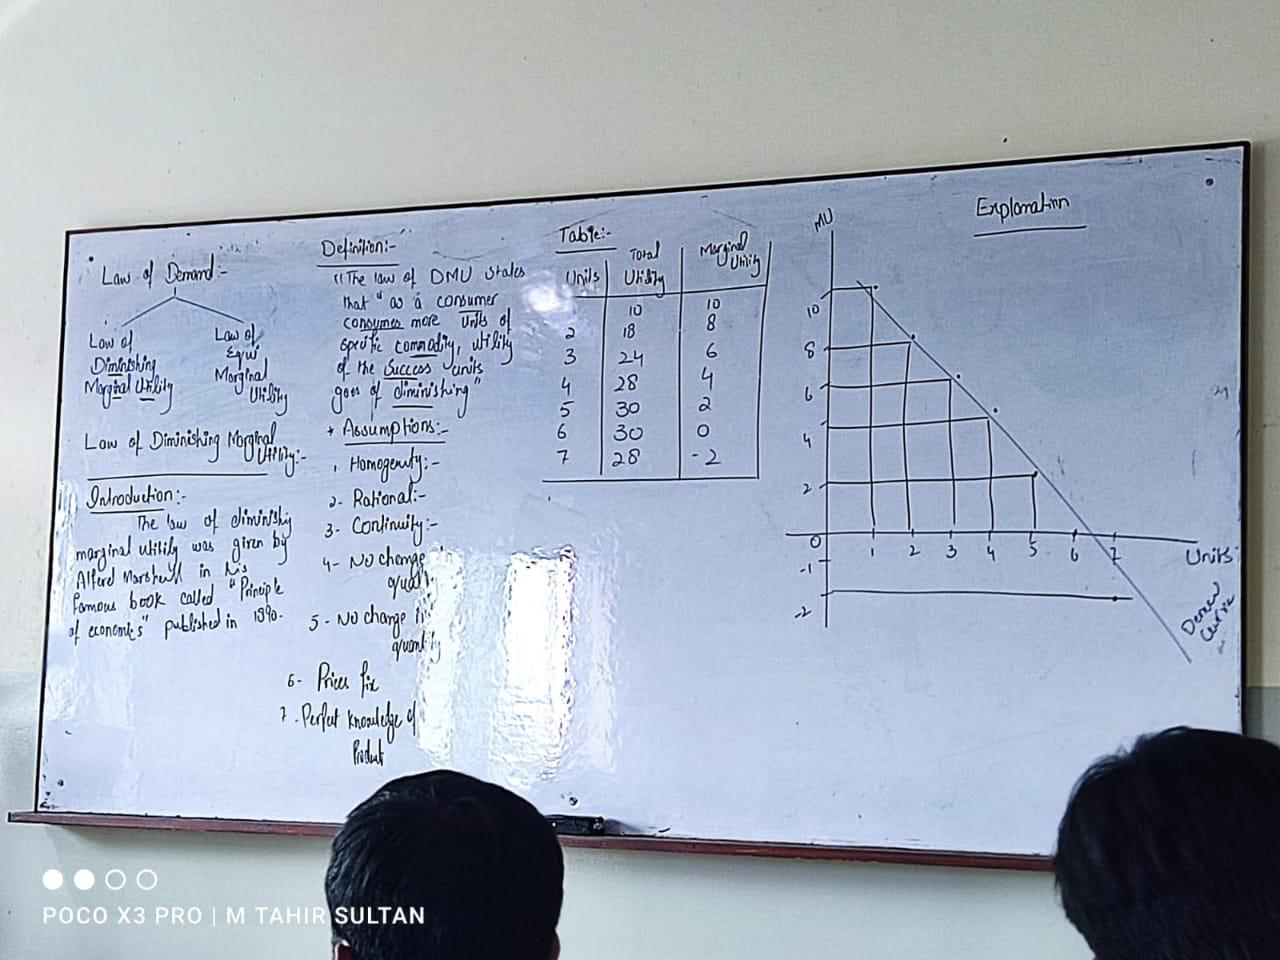 Law of Demand:-
Law of
Diminishing
Marginal Utility
Law of
Equi
Marginal
Utility
Law of Diminishing Marginal
Utility:-
Introduction:-
The law of diminishig
marginal utility was given by
Alferd Marshall in his
famous book called "Principle
of economics" published in 1890.
Definition:-
"The law of DMU states
that "as a consumer
consumes more units of
specific commodity, utility
of the success units
goes of diminishing"
* Assumptions:-
1. Homogenuty:-
2- Rational:-
3- Continuity:-
4- No change
quality
5- No change in
quantity
6- Prices fix
7. Perfect knowledge of
Product
Table:-
Units Total Utility Marginal Utility
10 10
2 18 8
3 24 6
4 28 4
5 30 2
6 30 0
7 28 -2
Explanation
MU
10
8
6
4
2
0 1 2 3 4 5 6 7 Units
-1
-2
Curve
POCO X3 PRO | M TAHIR SULTAN